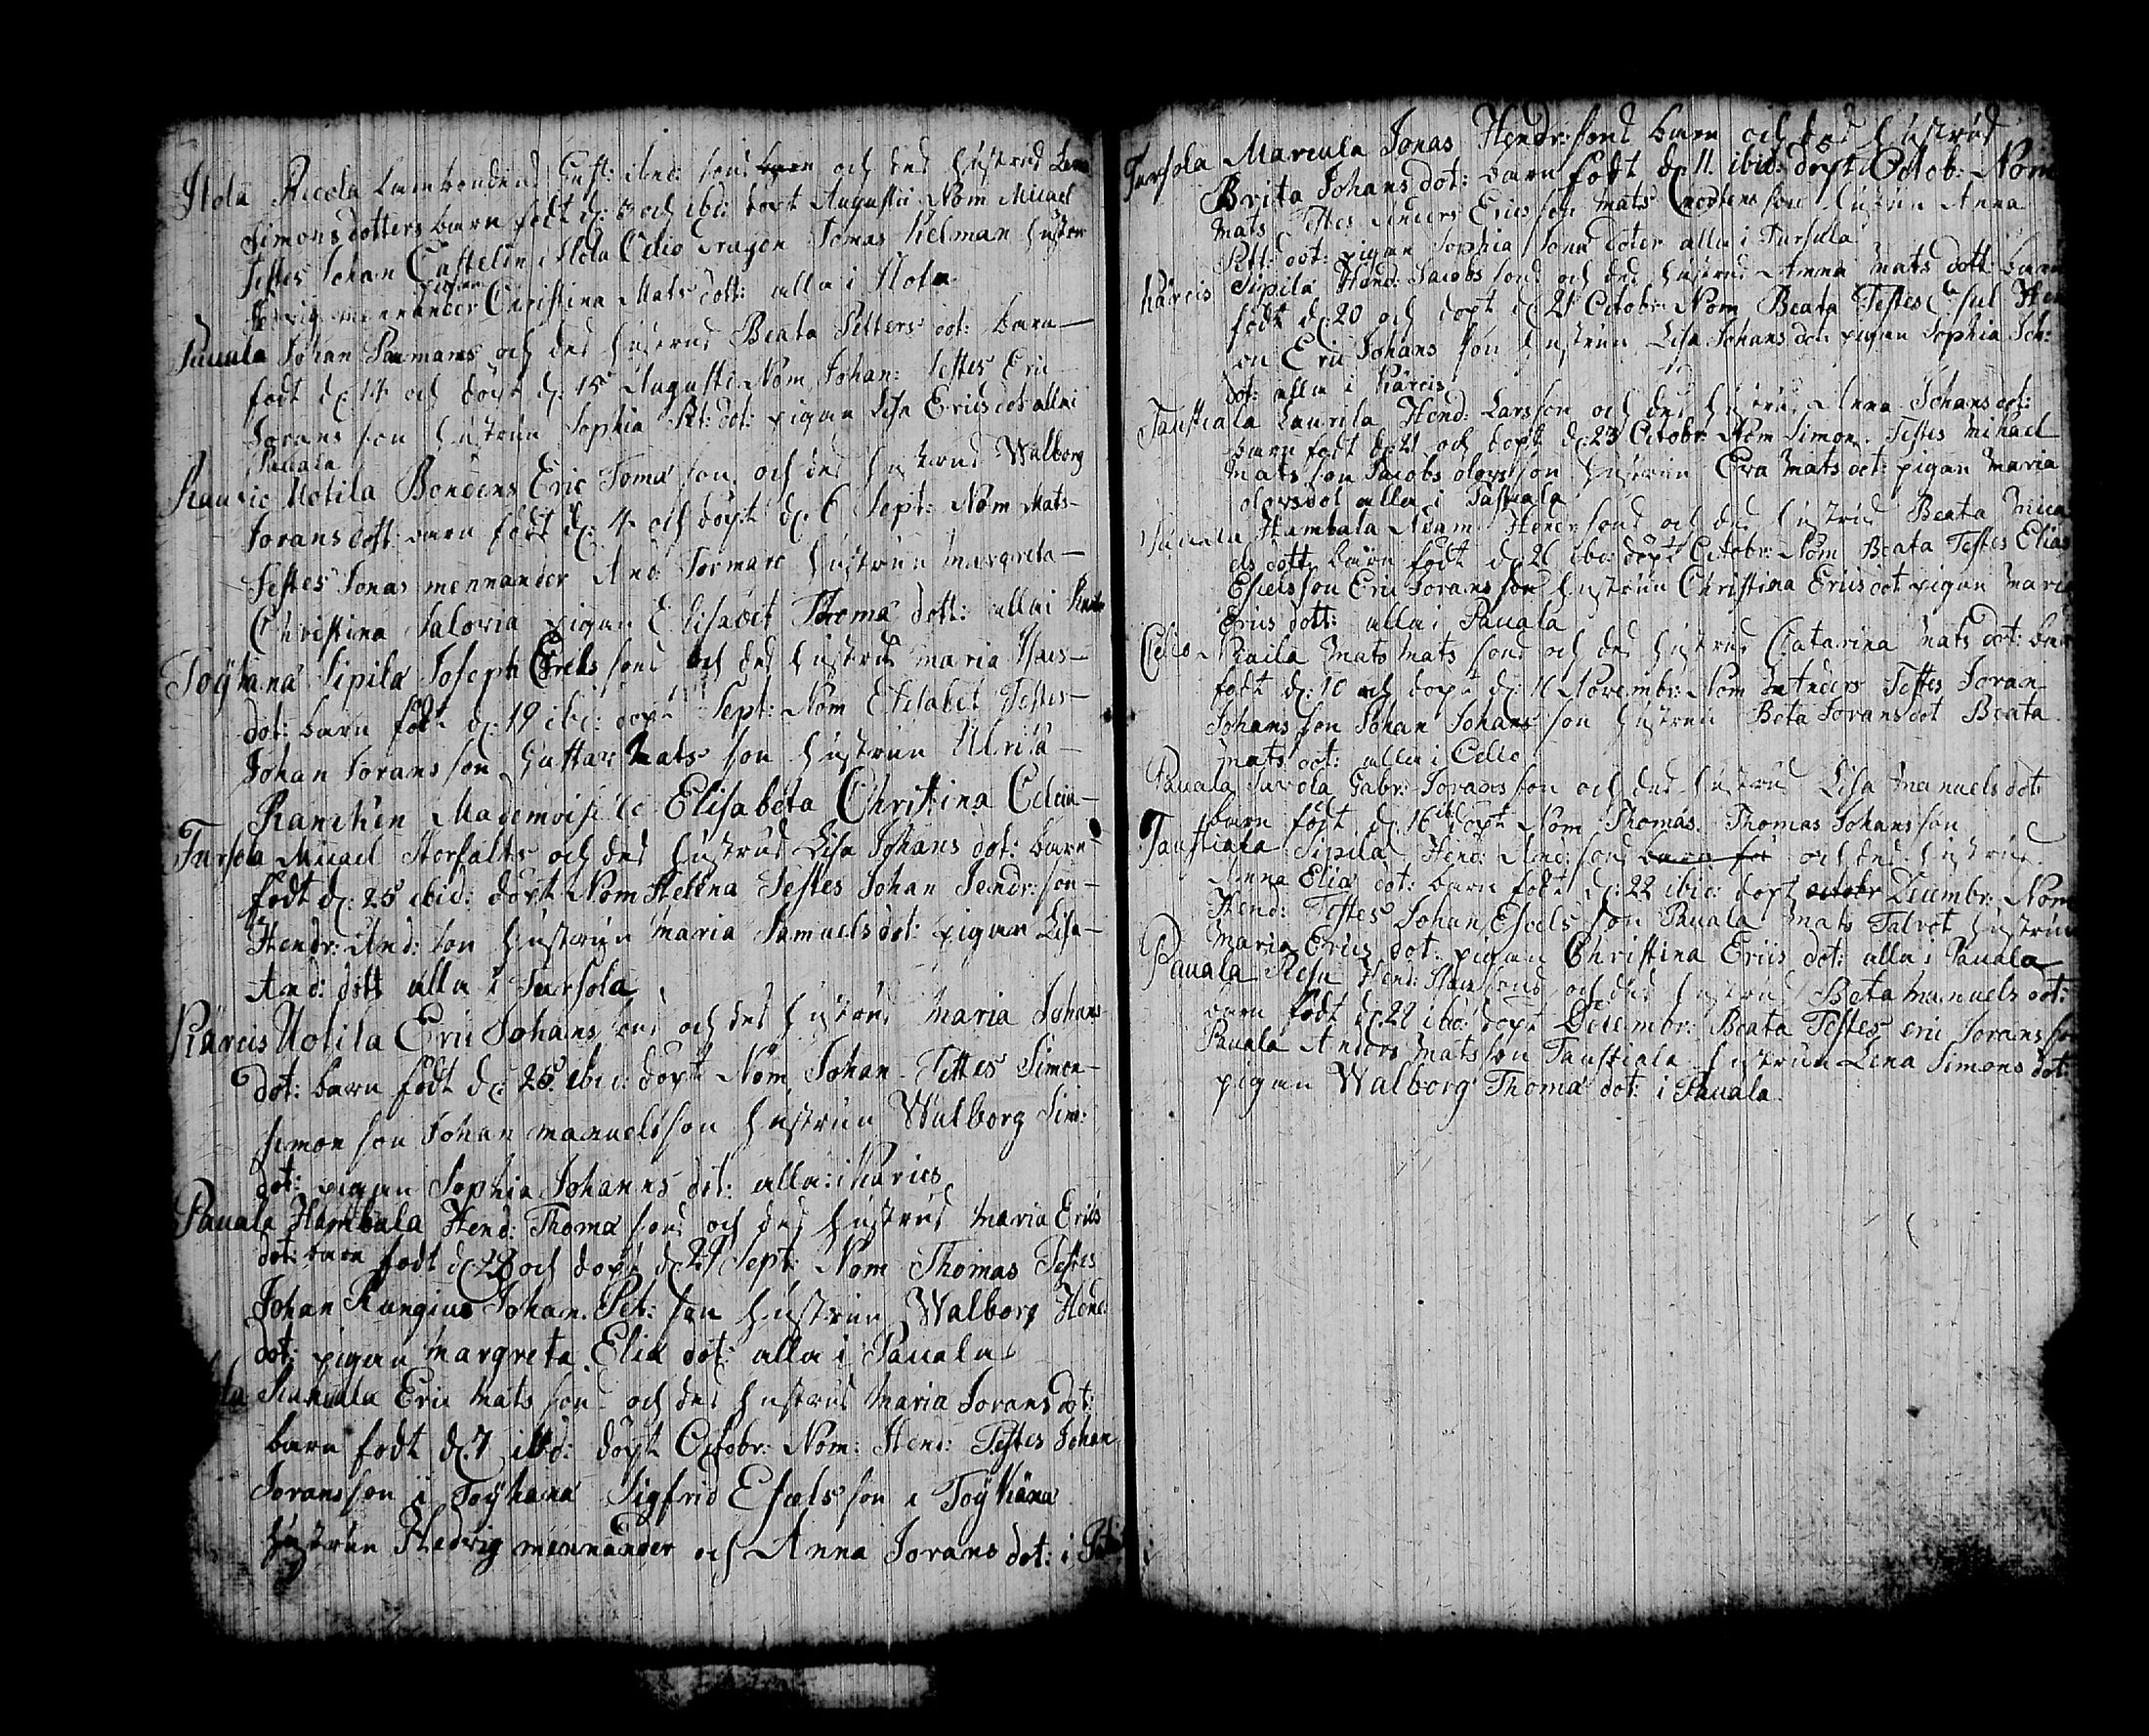 Ilola Ricola Landbondens Gust: And: sons barn och des hustrus Lena
Simonsdotters barn födt d: 5 och ibid: döpt Augustii Nom Micael
Testes Johan Castelin Ilola Celio Dragon Tomas Kielman hustru
pigan
Hedvig mennander Christina Mats dott: alla i Ilola
Pauala Johan Paumans och des hustrus Beata Petters dot: barn
födt d: 14 och döpt d: 15 Augusti Nom Johan: Testes Eric
Jorans son hustrun Sophia Pet: dot: pigan Lisa Erics dot alla i
Pauala
Kauric Uotila Bondens Eric Toma son och des hustrus Walborg
Jorans dott: barn födt d: 4 och döpt d: 6 Sept: Nom Mats
Testes Jonas mennander And: Tormarc hustrun margreta
Christina Salovia pigan Elisabet Thoma dott: alla i
Toÿkänä Sipilä Joseph Erics sons och des hustrus maria
dot: barn födt d: 19 ibid: döpt Sept: Nom Elisabet Testes
Johan Jorans son Gustav Mats son hustrun Ulrica
Ranchen Mademoiselle Elisabeta Christina
Tursola Micael Storfalts och des hustrus Lisa Johans dot: barn
födt d: 25 ibid: döpt Nom Helena Testes Johan Hendr: son
Hendr: And: son hustrun Maria Samuels dot: pigan Lisa
And: dott alla i Tursola
Kärcis Uotila Eric Johans sons och des hustrus Maria Johans
dot: barn födt d: 25 ibid: döpt Nom Johan Testes Simon
simon son Johan manuels son hustrun Walborg Sim:
dot: pigan Sophia Johans dot: alla i Karics
Pauala Hambala Hend: Thoma sons och des hustrus Maria Erics
dot: barn födt d: 28 och döpt d: 29 Sept: Nom Thomas Testes
Johan Rungius Johan Pet: son hustrun Walborg Hend:
dot: pigan Margreta Elia dot: alla i Pauala
Eric Mats son och des hustrus Maria Jorans dot:
barn födt d: 7 ibid: döpt Octobr: Nom: Hend: Testes Johan
Jorans son i Toÿkänä Sigfrid Escels son i Toÿkänä
hustrun Hedvig mennander och Anna Jorans dot: i
Tursola Marcula Jonas Hendr: sons barn och des hustrus
Brita Johans dot: barn födt d: 11. ibid: döpt Octob: Nom
Mats Testes Anders Erics son Mats Mortens son hustrun Anna
Pett: dot: pigan Sophia Jona doter alla i Tursula
Kärcis Sipilä Hend: Jacobs sons och des hustrus Anna Mats dott: barn
födt d: 20 och döpt d: 21 Octobr: Nom Beata Testes
on Eric Johans son hustrun Lisa Johans dot: pigan Sophia Joh:
dot: alla i Kärcis
Taustiala Laurila Hend: Lars son och des hustrus Anna Johans dot:
barn födt d: 21 och döpt d: 23 Octobr: Nom Simon. Testes Mihael
Mats son Jacobs olovs son hustrun Eva Mats dot: pigan Maria
olovs dot alla i Tastiala
Pauala Hambala Adam Hendr sons och des hustrus Beata Mica
els dott: barn födt d: 26 ibid: döpt Octobr: Nom Beata Testes Elias
Escels son Eric Jorans son hustrun Christina Erics dot pigan Maria
Erics dott: alla i Pauala
Celio Mats Mats sons och des hustrus Catarina Mats dot: barn
födt d: 10 och döpt d: 11 Novembr: Nom Anders Testes Joran
Johans son Johan Johans son hustrun Beta Jorans dot Beata
Mats dot: alla i Celio
Pauala Gabr: Jorans son och des hustrus Lisa Manuels dot:
barn födt d: 16 ibid: döpt Nom Thomas. Thomas Johans son
Taustiala Sipilä Hend: And: sons barn fö och des hustrus
Anna Elia dot: barn födt d: 22 ibid: döpt octobr Decembr: Nom
Hend: Testes Johan Escels son Pauala Mats Talvot hustrun
Maria Erics dot: pigan Christina Erics dot: alla i Pauala
Pauala Hend: sons och des hustrus Beta Manuels dot:
barn födt d: 22 ibid: döpt Decembr: Beata Testes eric Jorans son
Pauala Anders Mats son Taustiala hustrun Lena Simons dot:
pigan Walborg Thoma dot: i Pauala.